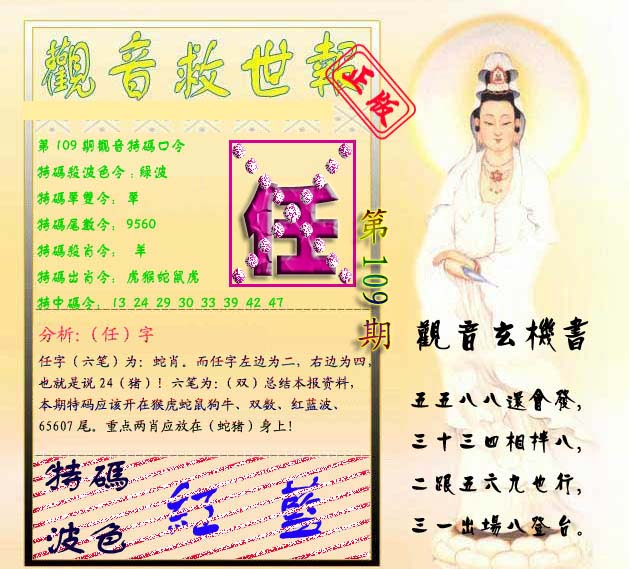 觀音救世報
正版
第109期觀音特碼口令
特碼殺波色令:綠波
特碼單雙令: 單
特碼尾數令: 9560
特碼殺肖令: 羊
特碼出肖令: 虎猴蛇鼠虎
特中碼令: 13 24 29 30 33 39 42 47
任
第109期
分析:(任)字
任字(六笔)为:蛇肖。而任字左边为二,右边为四,
也就是说24(猪)!六笔为:(双)总结本报资料,
本期特码应该开在猴虎蛇鼠狗牛、双数、红蓝波、
65607尾。重点两肖应放在(蛇猪)身上!
特碼
波色
紅 藍
觀音玄機書
五五八八還會發,
三十三四相拌八,
二跟五六九也行,
三一出場八登台。